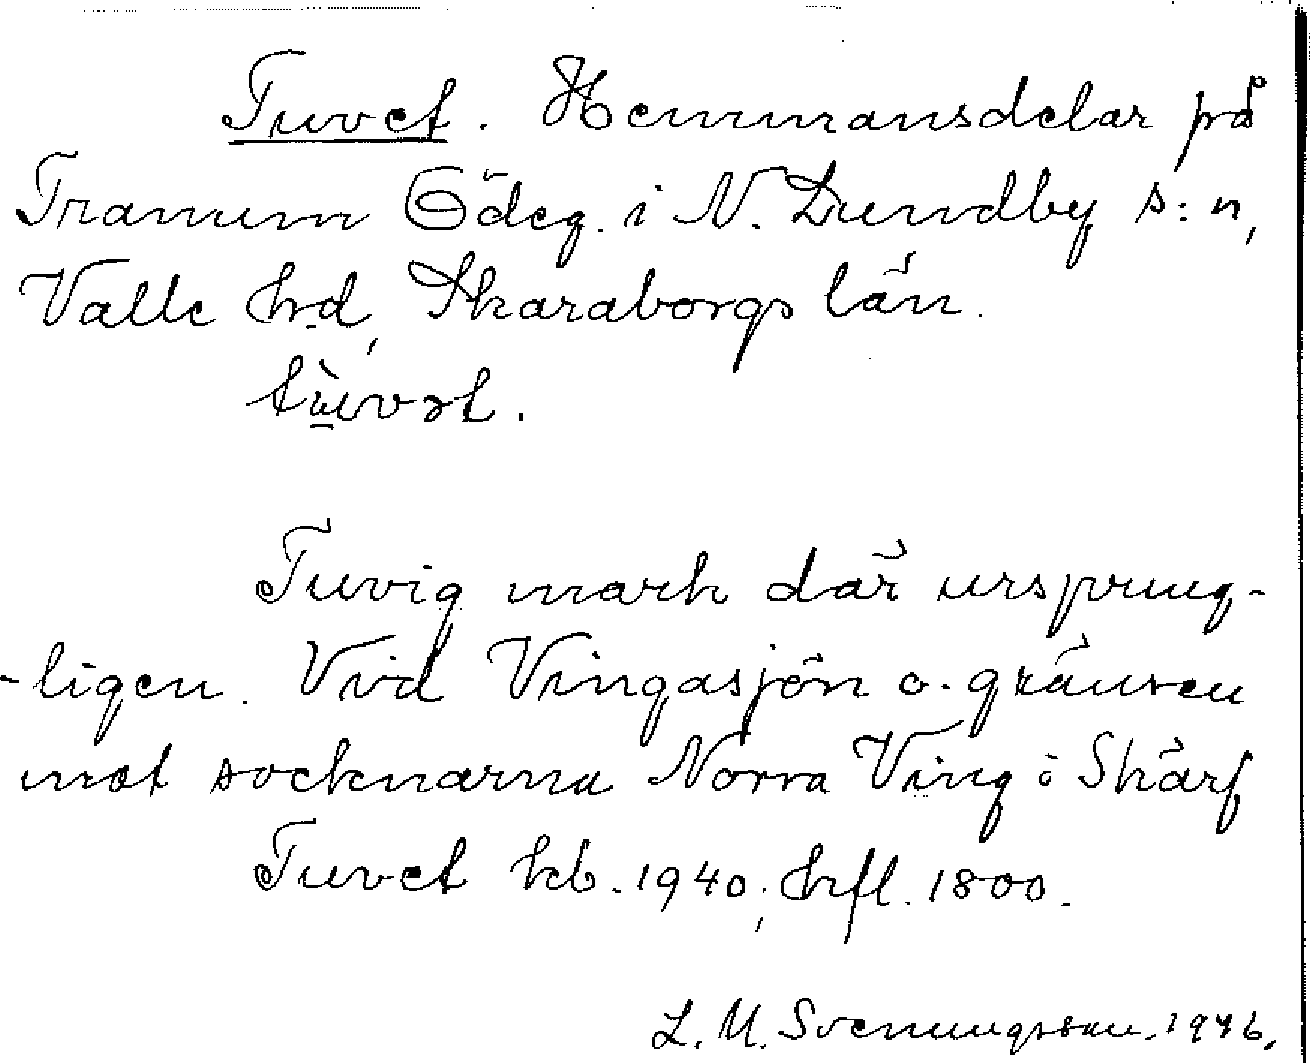 Tuvet. Hemmansdelar på
Tranum Ödeg. i N. Lundby s:n,
Valle hrd, Skaraborgs län.
tu̠̇̀vət.
Tuvig mark där ursprung-
-ligen. Vid Vingasjön o. gränsen
mot socknarna Norra Ving o Skärf
Tuvet kb. 1940; hfl. 1800.
L. M. Svenungsson. 1946.